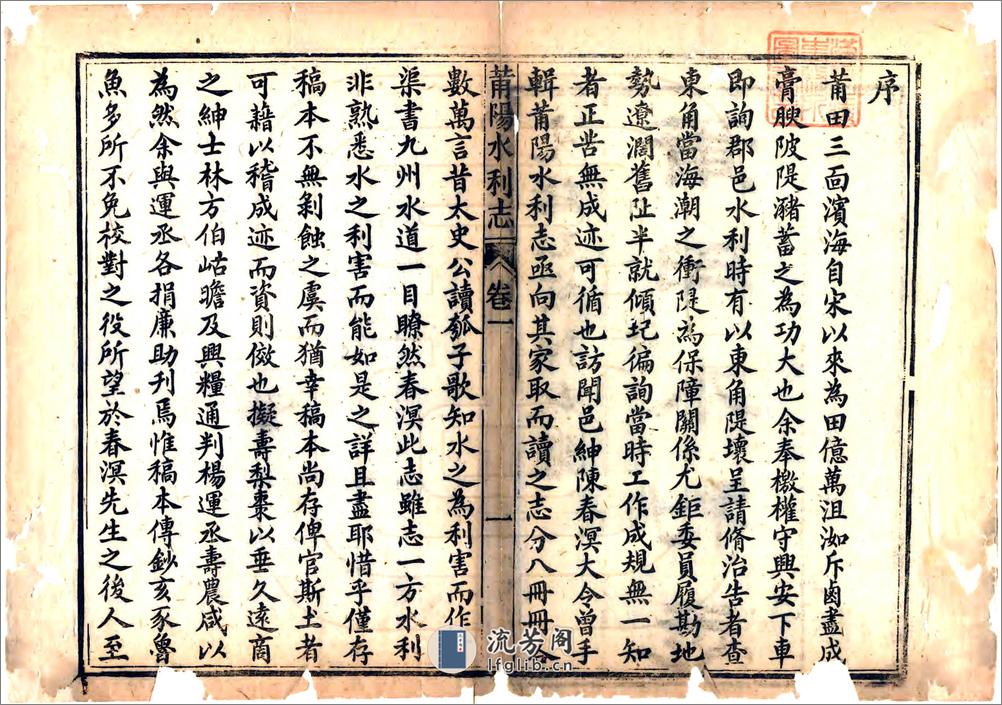 序
莆田三面濱海自宋以來為田億萬沮洳斥鹵盡成
膏腴陂隄瀦蓄之為功大也余奉檄權守興安下車
即詢郡邑水利時有以東角隄壞呈請脩治告者查
東角當海潮之衝隄為保障關係尤鉅委員履勘地
勢遼濶舊阯半就傾圮徧詢當時工作成規無一知
者正苦無成迹可循也訪聞邑紳陳春溟大令曾手
輯莆陽水利志亟向其家取而讀之志分八冊冊
莆陽水利志 卷一 一
數萬言昔太史公讀瓠子歌知水之為利害而作
渠書九州水道一目瞭然春溟此志雖志一方水利
非熟悉水之利害而能如是之詳且盡耶惜乎僅存
稿本不無剝蝕之虞而猶幸稿本尚存俾官斯土者
可藉以稽成迹而資則傚也擬壽梨棗以垂久遠商
之紳士林方伯岵瞻及興糧通判楊運丞壽農咸以
為然余與運丞各捐廉助刊焉惟稿本傳鈔亥豕魯
魚多所不免校對之役所望於春溟先生之後人至
流芳阁
lfglib.cn